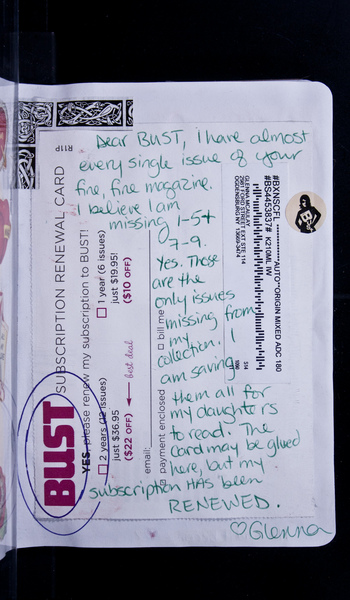 Dear BUST, I have almost
every single issue of your
fine, fine magazine.
I believe I am
missing 1-5 +
7-9.
Yes. Those
are the
only issues
missing from
my
collection. I
am saving
them all for
my daughters
to read. The
card may be glued
here, but my
subscription HAS been
RENEWED.
♡Glenna
R11P
SUBSCRIPTION RENEWAL CARD
BUST
YES, please renew my subscription to BUST!
2 years (12 issues)
just $36.95
($22 OFF)
best deal
1 year (6 issues)
just $19.95!
($10 OFF)
email:
payment enclosed
bill me
#BXNSCFL
AUTO**ORIGIN MIXED ADC 180
#BS4453837#
K210ML IW
GLENNA MCAULAY
2981 FORD STREET EXT STE 114
OGDENSBURG NY 13669-3474